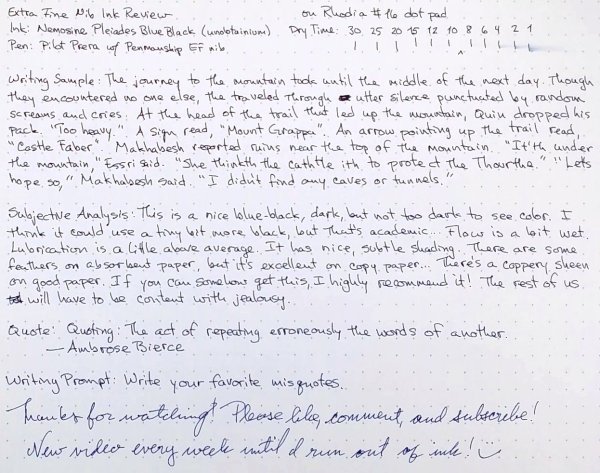 Extra Fine Nib Ink Review on Rhodia #16 dot pad
Ink: Nemosine Pleiades Blue Black (unobtainium). Dry Time: 30 25 20 15 12 10 8 6 4 2 1
Pen: Pilot Prera w/ Penmanship EF nib
Writing Sample: The journey to the mountain took until the middle of the next day. Though
they encountered no one else, the traveled through utter silence punctuated by random
screams and cries. At the head of the trail that led up the mountain, Quin dropped his
pack. "Too heavy." A sign read, "Mount Grappa". An arrow pointing up the trail read,
"Castle Faber." Makhabesh reported ruins near the top of the mountain. "It'th under
the mountain," Essri said. "She thinkth the cathtle ith to protect the Thourthe." "Let's
hope so," Makhabesh said. "I didn't find any caves or tunnels."
Subjective Analysis: This is a nice blue-black, dark, but not too dark to see color. I
think it could use a tiny bit more black, but that's academic... Flow is a bit wet.
Lubrication is a little above average. It has nice, subtle shading. There are some
feathers on absorbent paper, but it's excellent on copy paper... There's a coppery sheen
on good paper. If you can somehow get this, I highly recommend it! The rest of us
will have to be content with jealousy.
Quote: Quoting: The act of repeating erroneously the words of another.
— Ambrose Bierce
Writing Prompt: Write your favorite misquotes.
Thanks for watching! Please like, comment, and subscribe!
New video every week until I run out of ink!